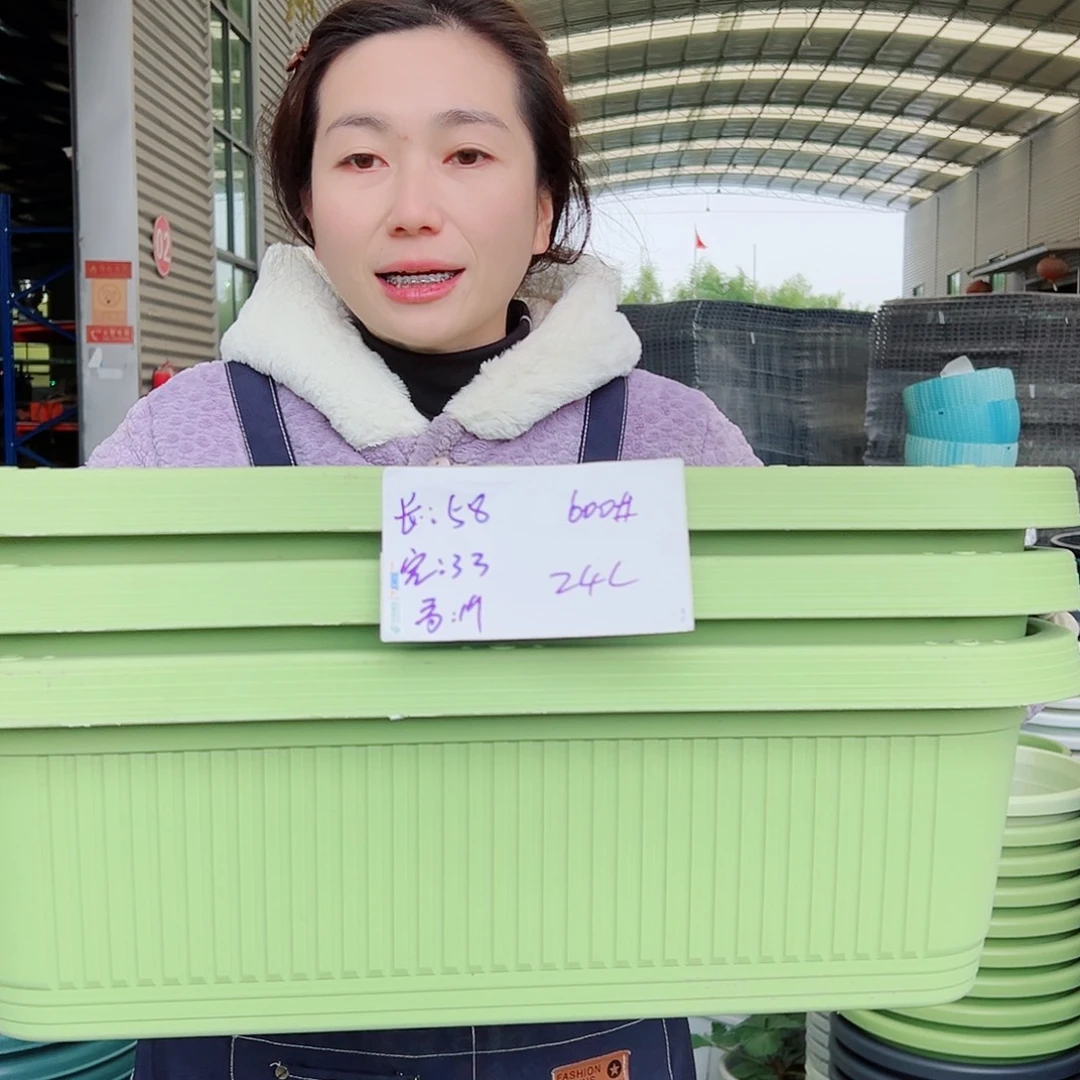 02
长:58 600#
宽:33 24L
高:19
FASHION